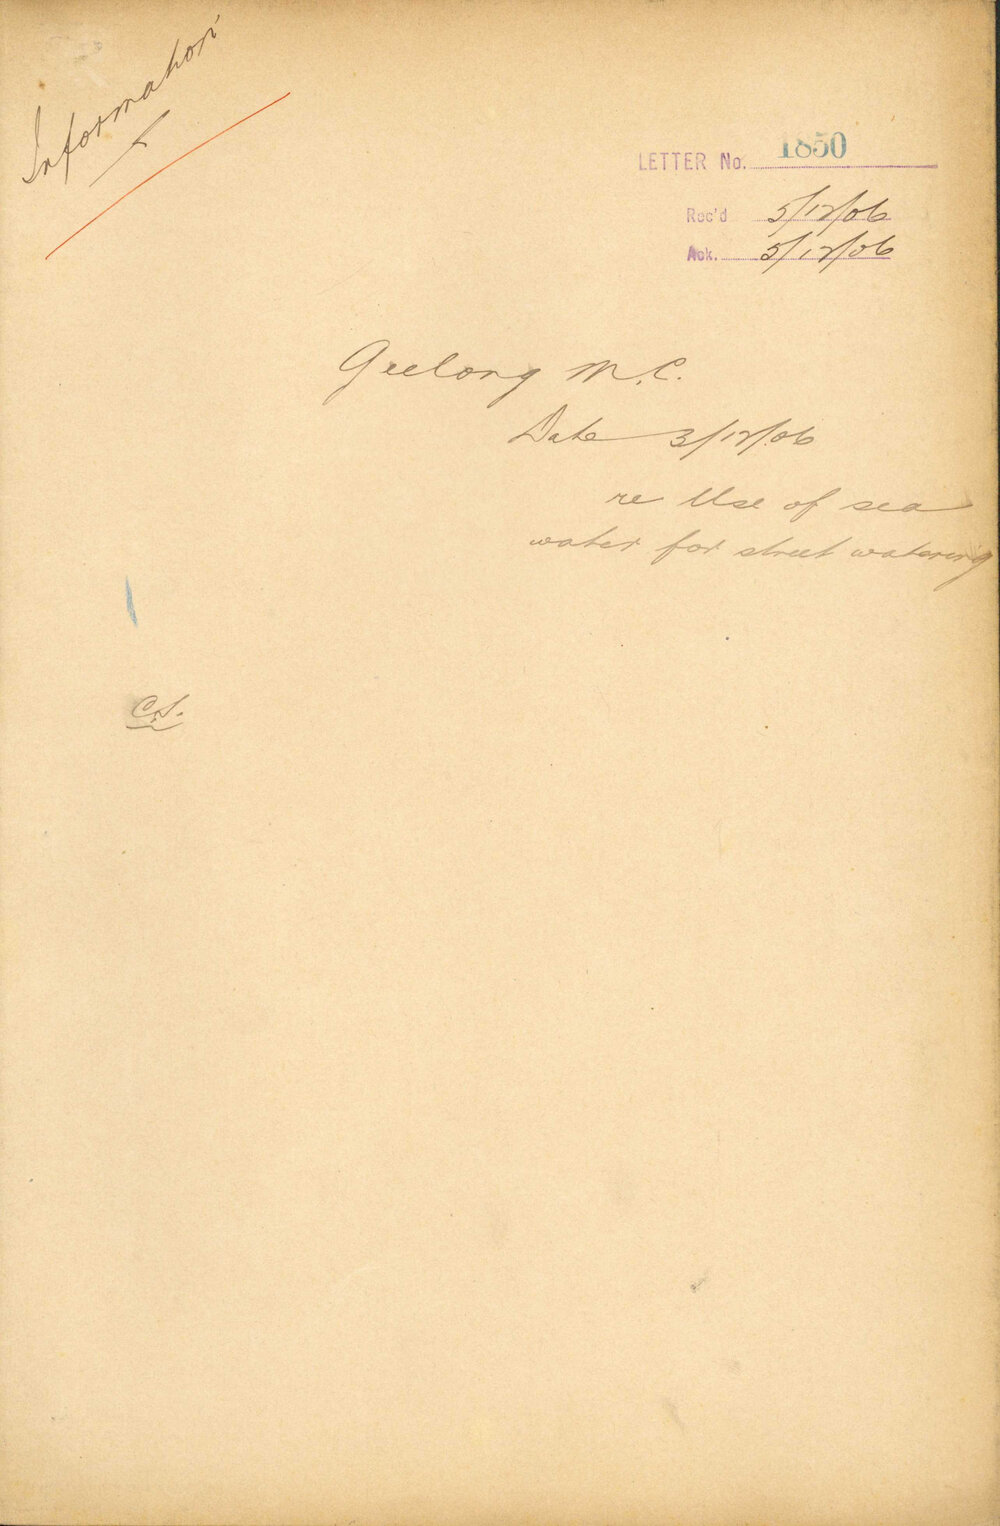 Information
LETTER No. 1850
Rec'd 5/12/06
Ack. 5/12/06
Geelong M.C.
Date 3/12/06
re Use of sea
water for street watering
C.S.